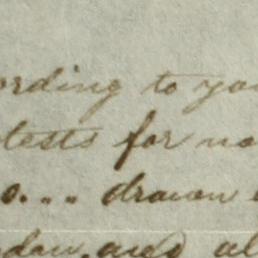 ording to you
tests for no
o... drawn